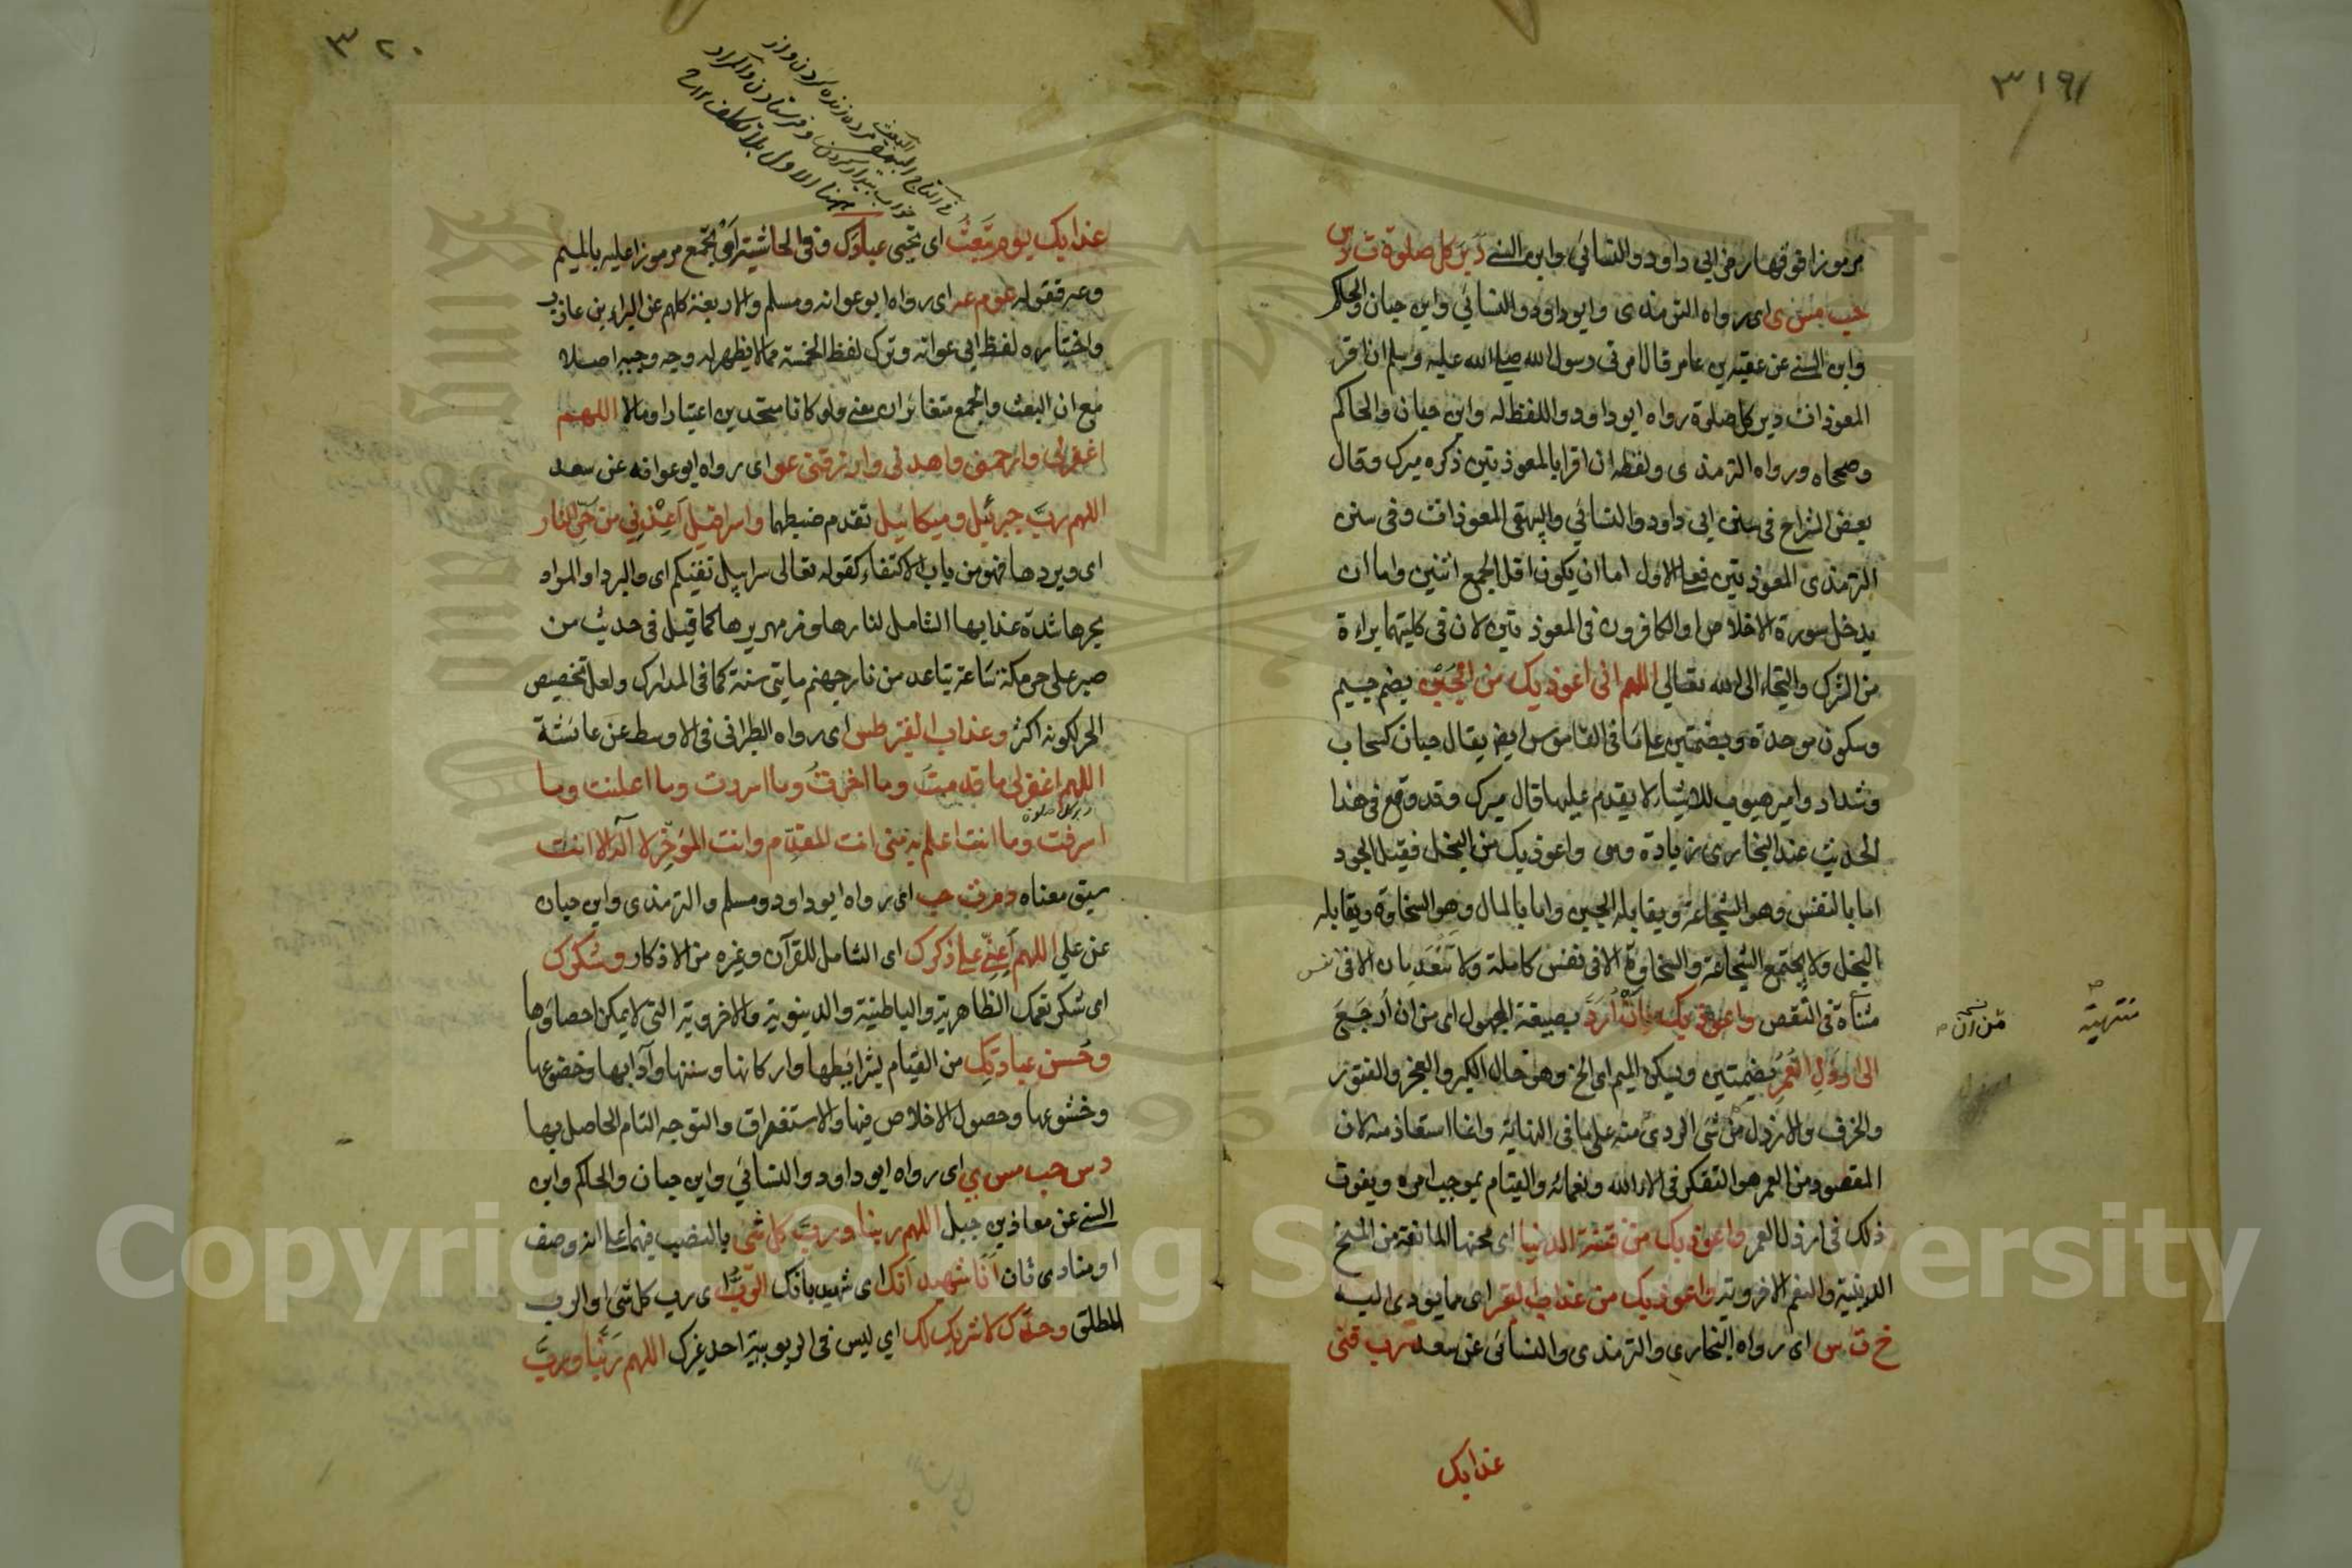 ٣١٩
مرموزا فوقها رمز ابي داود والنسائي وابن السني دبر كل صلوة د س
حب مس ى اى رواه الترمذى وابو داود والنسائي وابن حبان والحاكم
وابن السني عن عقبة بن عامر قال امرنى رسول الله صلى الله عليه وسلم ان اقرأ
المعوذات دبر كل صلوة رواه ابو داود واللفظ له وابن حبان والحاكم
وصححاه ورواه الترمذى ولفظه ان اقرا بالمعوذتين ذكره ميرك وقال
بعض الشراح فى سنن ابى داود والنسائي والبيهقى المعوذات وفى سنن
الترمذى المعوذتين فعلى الاول اما ان يكون اقل الجمع اثنين واما ان
يدخل سورة الاخلاص او الكافرون فى المعوذتين لان فى كلتيهما براءة
من الشرك والتجاء الى الله تعالى اللهم انى اعوذ بك من الجبن بضم جيم
وسكون موحدة وبضمتين على ما فى القاموس ايضا يقال جبان كسحاب
وشداد وامير هيوب للاشياء لا يقدم عليها قال ميرك وقد وقع فى هذا
الحديث عند البخارى زيادة وهى واعوذ بك من البخل فقيل الجود
اما بالنفس وهو الشجاعة ويقابله الجبن واما بالمال وهو السخاوة ويقابله
البخل ولا يجتمع الشجاعة والسخاوة الا فى نفس كاملة ولا ينعدمان الا فى نفس
متناه فى النقص واعوذ بك من ان ارد بصيغة المجهول اى من ان ارجع
الى ارذل العمر بضمتين ويسكن الميم اى اخره وهى حال الكبر والعجز والفتور
والخرف والارذل من شئ الردئ منه على ما فى النهاية وانما استعاذ منه لان
المقصود من العمر هو التفكر فى آلاء الله ونعمائه والقيام بموجب امره ويفوت
ذلك فى ارذل العمر واعوذ بك من فتنة الدنيا اى محنها المانعة من المنح
الدينية والنعم الاخروية واعوذ بك من عذاب القبر اى مما يؤدى اليه
خ ت س اى رواه البخارى والترمذى والنسائى عن سعد رب قنى
عذابك
منتهية
من ان
٣٢٠
عذابك يوم تبعث اى تحيى عبادك وفى الحاشية او تجمع مرموزا عليه بالميم
وعه فقوله عو م عه اى رواه ابو عوانه ومسلم والاربعة كلهم عن البراء بن عازب
واختاره لفظ ابى عوانه وترك لفظ الخمسة مما لا يظهر له وجه وجيه اصلا
مع ان البعث والجمع متغائران معنى ولو كانا متحدين اعتبارا ومالا اللهم
اغفرلى وارحمنى واهدنى وارزقنى عو اى رواه ابو عوانه عن سعد
اللهم رب جبرئيل وميكائيل تقدم ضبطهما واسرافيل اعذنى من حر النار
اى وبردها فهو من باب الاكتفاء كقوله تعالى سرابيل تقيكم اى والبرد او المراد
بحرها شدة عذابها الشامل لنارها وزمهريرها كما قيل فى حديث من
صبر على حر مكة ساعة تباعد من نار جهنم مايتى سنة كما فى المدارك ولعل تخصيص
الحر لكونه اكثر وعذاب القبر طس اى رواه الطبرانى فى الاوسط عن عائشة
اللهم اغفرلى ما قدمت وما اخرت وما اسررت وما اعلنت وما
دبر كل صلوة
اسرفت وما انت اعلم به منى انت المقدم وانت المؤخر لا اله الا انت
سبق معناه د م ت حب اى رواه ابو داود ومسلم والترمذى وابن حبان
عن علي اللهم اعنى على ذكرك اى الشامل للقرآن وغيره من الاذكار وشكرك
اى شكر نعمك الظاهرية والباطنية والدنيوية والاخروية التى لا يمكن احصاؤها
وحسن عبادتك من القيام بشرائطها واركانها وسننها وآدابها وخضوعها
وخشوعها وحصول الاخلاص فيها والاستغراق والتوجه التام الحاصل بها
د س حب مس ي اى رواه ابو داود والنسائي وابن حبان والحاكم وابن
السنى عن معاذ بن جبل اللهم ربنا ورب كل شئ بالنصب فيهما على انه وصف
او منادى ثان انا شهيد انك اى شهيد بانك الرب اى رب كل شئ او الرب
المطلق وحدك لا شريك لك اي ليس فى الربوبية احد غيرك اللهم ربنا ورب
Copyright © King Saud University
1957